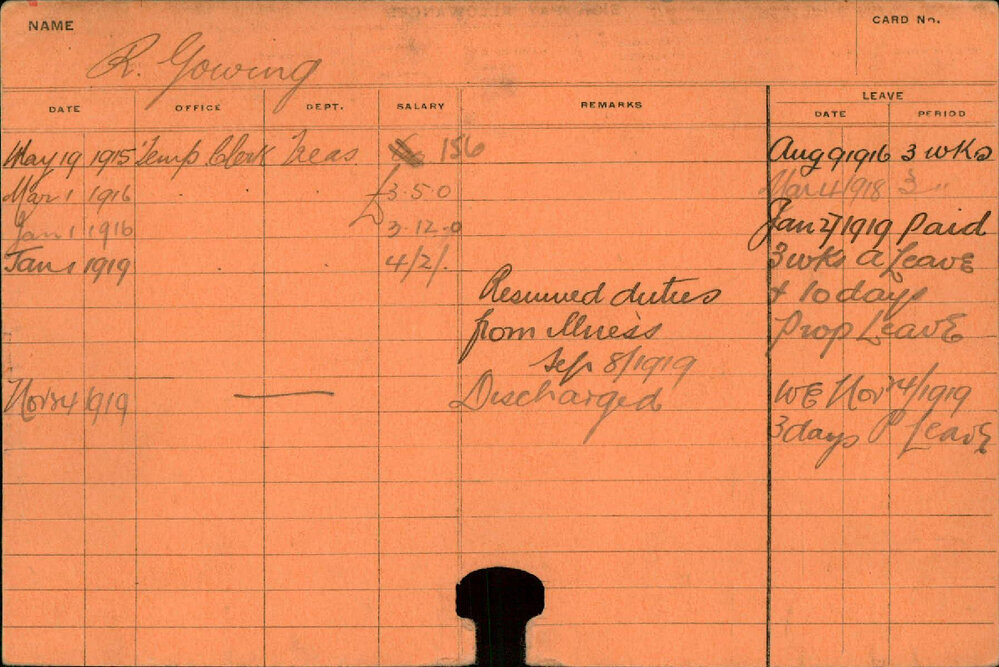 NAME
CARD No.
R. Gowing
DATE OFFICE DEPT. SALARY REMARKS LEAVE
DATE PERIOD
May 19 1915 Temp Clerk Treas 156 Aug 9 1916 3 wks
Mar 1 1916 £3.5.0 Mar 4 1918 3 "
Jan 1 1916 3.12.0 Jan 27 1919 Paid
Jan 1 1919 4/2/. 3 wks A Leave
Resumed duties + 10 days
from illness Prop Leave
Sep 8/1919
Nov 24 1919 — Discharged WE Nov 24/1919
3 days P Leave